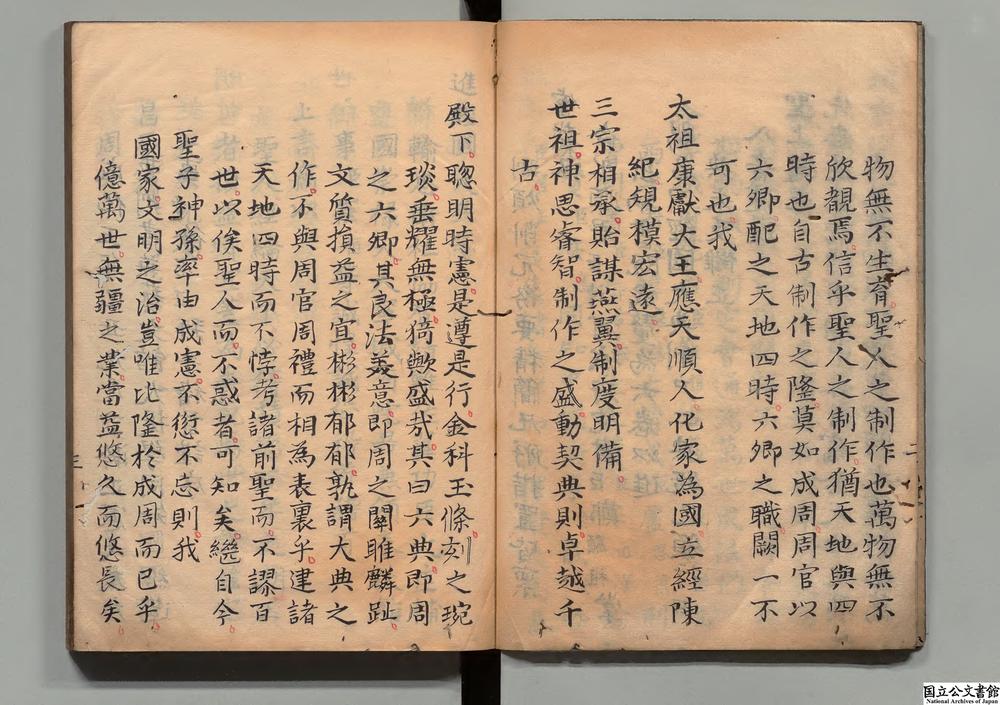 物無不生育聖人之制作也萬物無不
欣覩焉信乎聖人之制作猶天地與四
時也自古制作之隆莫如成周周官以
六卿配之天地四時六卿之職闕一不
可也我
太祖康獻大王應天順人化家為國立經陳
紀規模宏遠
三宗相承貽謀燕翼制度明備
世祖神思睿智制作之盛動契典則卓越千
古
進
殿下聰明時憲是遵是行金科玉條刻之琬
琰垂耀無極猗歟盛哉其曰六典即周
之六卿其良法美意即周之關雎麟趾
文質損益之宜彬彬郁郁孰謂大典之
作不與周官周禮而相為表裏乎建諸
天地四時而不悖考諸前聖而不謬百
世以俟聖人而不惑者可知矣繼自今
聖子神孫率由成憲不愆不忘則我
國家文明之治豈唯比隆於成周而已乎
億萬世無疆之業當益悠久而悠長矣
二
三
国立公文書館
National Archives of Japan